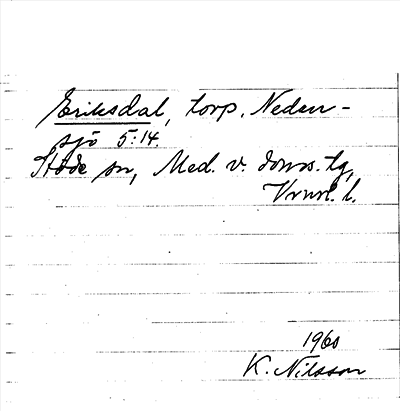 Eriksdal, torp, Neden-
sjö 5:14.
Stöde sn, Med. v. doms. tg,
Vrnrl. l.
1960
K. Nilsson